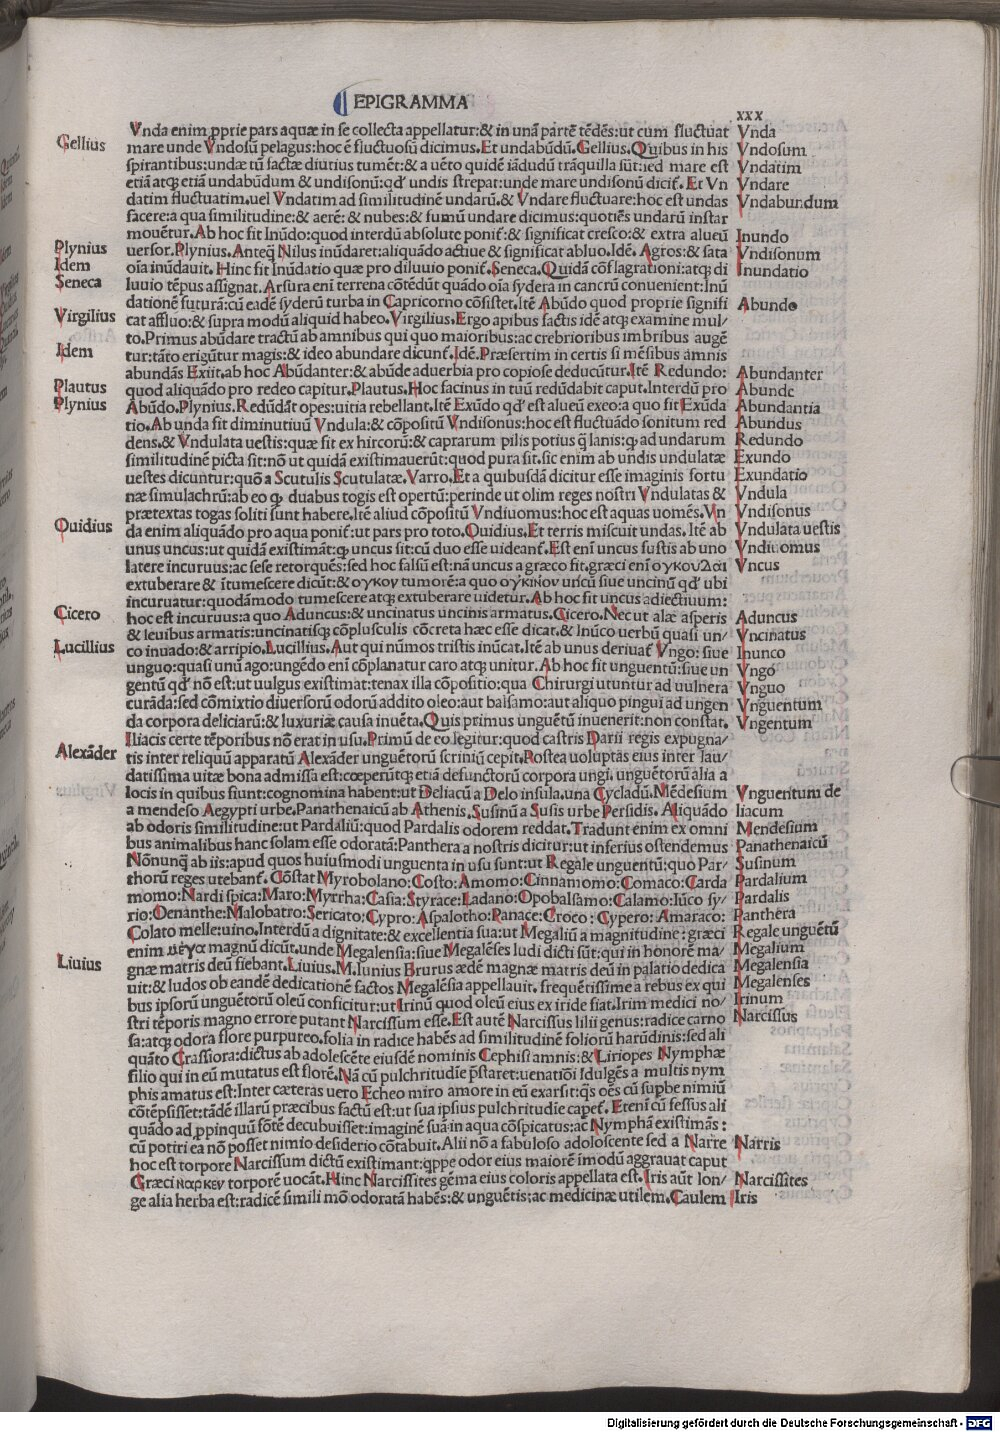 EPIGRAMMA
xxx
Vnda enim ꝓprie pars aquæ in se collecta appellatur:& in unā partē tēdēs:ut cum fluctuat
mare unde Vndosū pelagus:hoc ē fluctuosū dicimus.Et undabūdū.Gellius.Quibus in his
spirantibus:undæ tū factæ diutius tumēt:& a uēto quidē iādudū trāquilla sūt:sed mare est
etiā atqꝫ etiā undabūdum & undisonū:qd' undis strepat:unde mare undisonū dicit̄.Et Vn
datim fluctuatim.uel Vndatim ad similitudinē undarū.& Vndare fluctuare:hoc est undas
facere:a qua similitudine:& aerē:& nubes:& fumū undare dicimus:quotiēs undarū instar
mouētur.Ab hoc fit Inūdo:quod interdū absolute ponit̄:& significat cresco:& extra alueū
uersor.Plynius.Anteq̄ Nilus inūdaret:aliquādo actiue & significat abluo.Idē.Agros:& sata
oīa inūdauit.Hinc fit Inūdatio quæ pro diluuio ponit̄.Seneca.Quidā cōflagrationi:atqꝫ di
luuio tēpus assignat.Arsura eni terrena cōtēdūt quādo oīa sydera in cancrū conuenient:Inū
dationē futurā:cū eadē syderū turba in Capricorno cōsistet.Itē Abūdo quod proprie signifi
cat affluo:& supra modū aliquid habeo.Virgilius.Ergo apibus factis idē atqꝫ examine mul-
to.Primus abūdare tractū ab amnibus qui quo maioribus:ac crebrioribus imbribus augē
tur:tāto erigūtur magis:& ideo abundare dicunt̄.Idē.Præsertim in certis si mēsibus amnis
abundās Exiit.ab hoc Abūdanter:& abūde aduerbia pro copiose deducūtur.Itē Redundo:
quod aliquādo pro redeo capitur.Plautus.Hoc facinus in tuū redūdabit caput.Interdū pro
Abūdo.Plynius.Redūdāt opes:uitia rebellant.Itē Exūdo qd' est alueū exeo:a quo fit Exūda
tio.Ab unda fit diminutiuū Vndula:& cōpositū Vndisonus:hoc est fluctuādo sonitum red
dens.& Vndulata uestis:quæ fit ex hircorū:& caprarum pilis potius q̄ lanis:qꝫ ad undarum
similitudinē picta sit:nō ut quidā existimauerūt:quod pura sit.sic enim ab undis undulatæ
uestes dicuntur:quō a Scutulis Scutulatæ.Varro.Et a quibusdā dicitur esse imaginis fortu
næ simulachrū:ab eo qꝫ duabus togis est opertū:perinde ut olim reges nostri Vndulatas &
prætextas togas soliti sunt habere.Itē aliud cōpositū Vndiuomus:hoc est aquas uomēs.Vn
da enim aliquādo pro aqua ponit̄:ut pars pro toto.Ouidius.Et terris miscuit undas.Itē ab
unus uncus:ut quidā existimāt:qꝫ uncus sit:cū duo esse uideant̄.Est eni uncus fustis ab uno
latere incuruus:ac sese retorquēs:sed hoc falsū est:nā uncus a græco fit.græci eni ογκουδαι
extuberare & ītumescere dicūt:& ογκον tumorē:a quo ογκινον uncū siue uncinū qd' ubi
incuruatur:quodāmodo tumescere atqꝫ extuberare uidetur.Ab hoc fit uncus adiectiuum:
hoc est incuruus:a quo Aduncus:& uncinatus uncinis armatus.Cicero.Nec ut alæ asperis
& leuibus armatis:uncinatisqꝫ cōplusculis cōcreta hæc esse dicat.& Inūco uerbū quasi un/
co inuado:& arripio.Lucillius.Aut qui nūmos tristis inūcat.Itē ab unus deriuat̄ Vngo:siue
unguo:quasi unū ago:ungēdo eni cōplanatur caro atqꝫ unitur.Ab hoc fit unguentū:siue un
gentū qd' nō est:ut uulgus existimat:tenax illa cōpositio:qua Chirurgi utuntur ad uulnera
curāda:sed cōmixtio diuersorū odorū addito oleo:aut balsamo:aut aliquo pingui ad ungen
da corpora deliciarū:& luxuriæ causa inuēta.Quis primus unguētū inuenerit:non constat.
Iliacis certe tēporibus nō erat in usu.Primū de eo legitur:quod castris Darii regis expugna/
tis inter reliquū apparatū Alexāder unguētorū scriniū cepit.Postea uoluptas eius inter lau/
datissima uitæ bona admissa est:cœperūtqꝫ etiā defunctorū corpora ungi.unguētorū alia a
locis in quibus fiunt:cognomina habent:ut Deliacū a Delo insula.una Cycladū.Mēdesium
a mendeso Aegypti urbe.Panathenaicū ab Athenis.Susinū a Susis urbe Persidis.Aliquādo
ab odoris similitudine:ut Pardaliū:quod Pardalis odorem reddat.Tradunt enim ex omni
bus animalibus hanc solam esse odoratā:Panthera a nostris dicitur:ut inferius ostendemus
Nōnunq̄ ab iis:apud quos huiusmodi unguenta in usu sunt:ut Regale unguentū:quo Par/
thorū reges utebant̄.Cōstat Myrobolano:Costo:Amomo:Cinnamomo:Comaco:Carda
momo:Nardi spica:Maro:Myrrha:Casia:Styrace:Ladano:Opobalsamo:Calamo:Iūco sy/
rio:Oenanthe:Malobatro:Sericato:Cypro:Aspalotho:Panace:Croco:Cypero:Amaraco:
Colato melle:uino.Interdū a dignitate:& excellentia sua:ut Megaliū a magnitudine:græci
enim μέγα magnū dicūt.unde Megalensia:siue Megalēses ludi dicti sūt:qui in honorē ma/
gnæ matris deū fiebant.Liuius.M.Iunius Brurus ædē magnæ matris deū in palatio dedica
uit:& ludos ob eandē dedicationē factos Megalēsia appellauit.frequētissime a rebus ex qui
bus ipsorū unguētorū oleū conficitur:ut Irinū quod oleū eius ex iride fiat.Irim medici no/
stri tēporis magno errore putant Narcissum esse.Est autē Narcissus lilii genus:radice carno
sa:atqꝫ odora flore purpureo.folia in radice habēs ad similitudinē foliorū harūdinis:sed ali
quāto Crassiora:dictus ab adolescēte eiusdē nominis Cephisi amnis:& Liriopes Nymphæ
filio qui in eū mutatus est florē.Nā cū pulchritudie p̄staret:uenatiōi īdulgēs a multis nym
phis amatus est:Inter cæteras uero Echeo miro amore in eū exarsit:q̄s oēs cū supbe nimiū
cōtēpsisset:tādē illarū præcibus factū est:ut sua ipsius pulchritudie capet̄.Eteni cū fessus ali
quādo ad ꝓpinquū fōtē decubuisset:imaginē suā in aqua cōspicatus:ac Nymphā existimās:
cū potiri ea nō posset nimio desiderio cōtabuit.Alii nō a fabuloso adoloscente sed a Narre
hoc est torpore Narcissum dictū existimant:qꝑpe odor eius maiorē īmodū aggrauat caput
Græci ναρκεν torporē uocāt.Hinc Narcissites gēma eius coloris appellata est.Iris aūt lon/
ge alia herba est:radicē simili mō odoratā habēs:& unguētis:ac medicinæ utilem.Caulem
Gellius
Plynius
Idem
Seneca
Virgilius
Idem
Plautus
Plynius
Ouidius
Cicero
Lucillius
Alexāder
Liuius
Vnda
Vndosum
Vndatim
Vndare
Vndabundum
Inundo
Vndisonum
Inundatio
Abundo
Abundanter
Abunde
Abundantia
Abundus
Redundo
Exundo
Exundatio
Vndula
Vndisonus
Vndulata uestis
Vndiuomus
Vncus
Aduncus
Vncinatus
Inunco
Vngo
Vnguo
Vnguentum
Vngentum
Vnguentum de
liacum
Mendesium
Panathenaicū
Susinum
Pardalium
Pardalis
Panthera
Regale unguētū
Megalium
Megalensia
Megalenses
Irinum
Narcissus
Narris
Narcissites
Iris
Digitalisierung gefördert durch die Deutsche Forschungsgemeinschaft - DFG